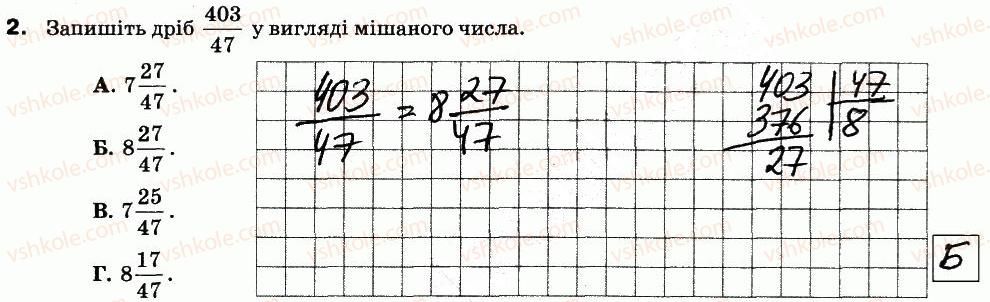 2. Запишіть дріб 403/47 у вигляді мішаного числа.
А. 7 27/47.
Б. 8 27/47.
В. 7 25/47.
Г. 8 17/47.
403/47 = 8 27/47
403 | 47
376 | 8
27
Б
vshkole.com